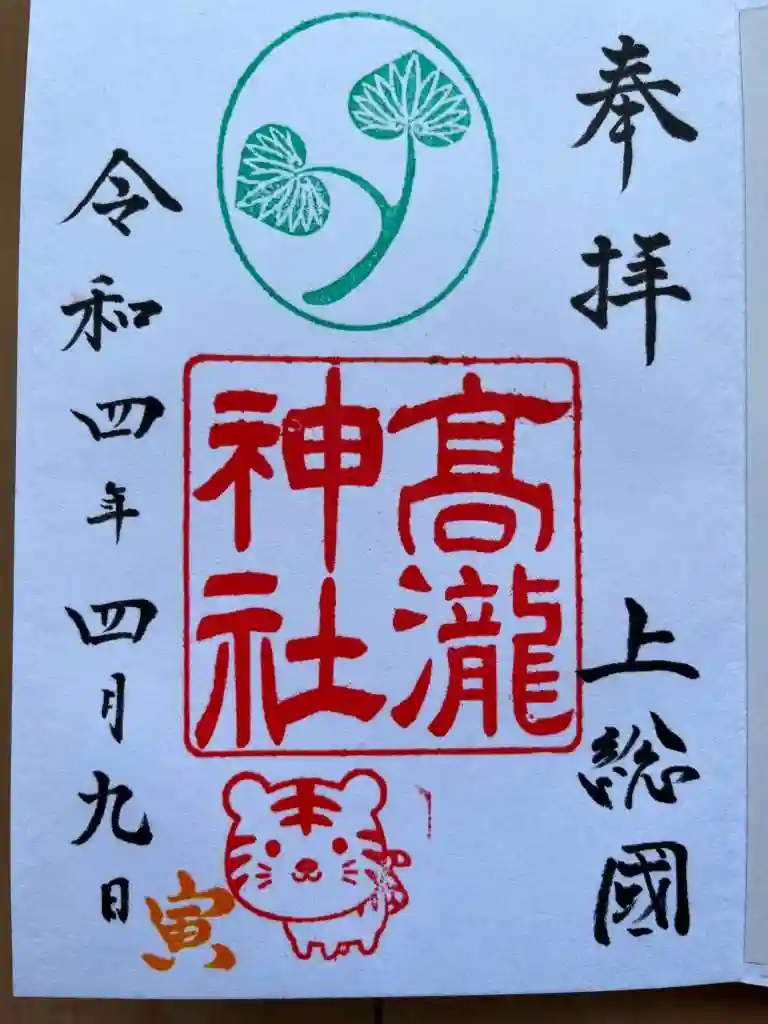 奉拝
上総國
髙瀧
神社
令和四年四月九日
寅